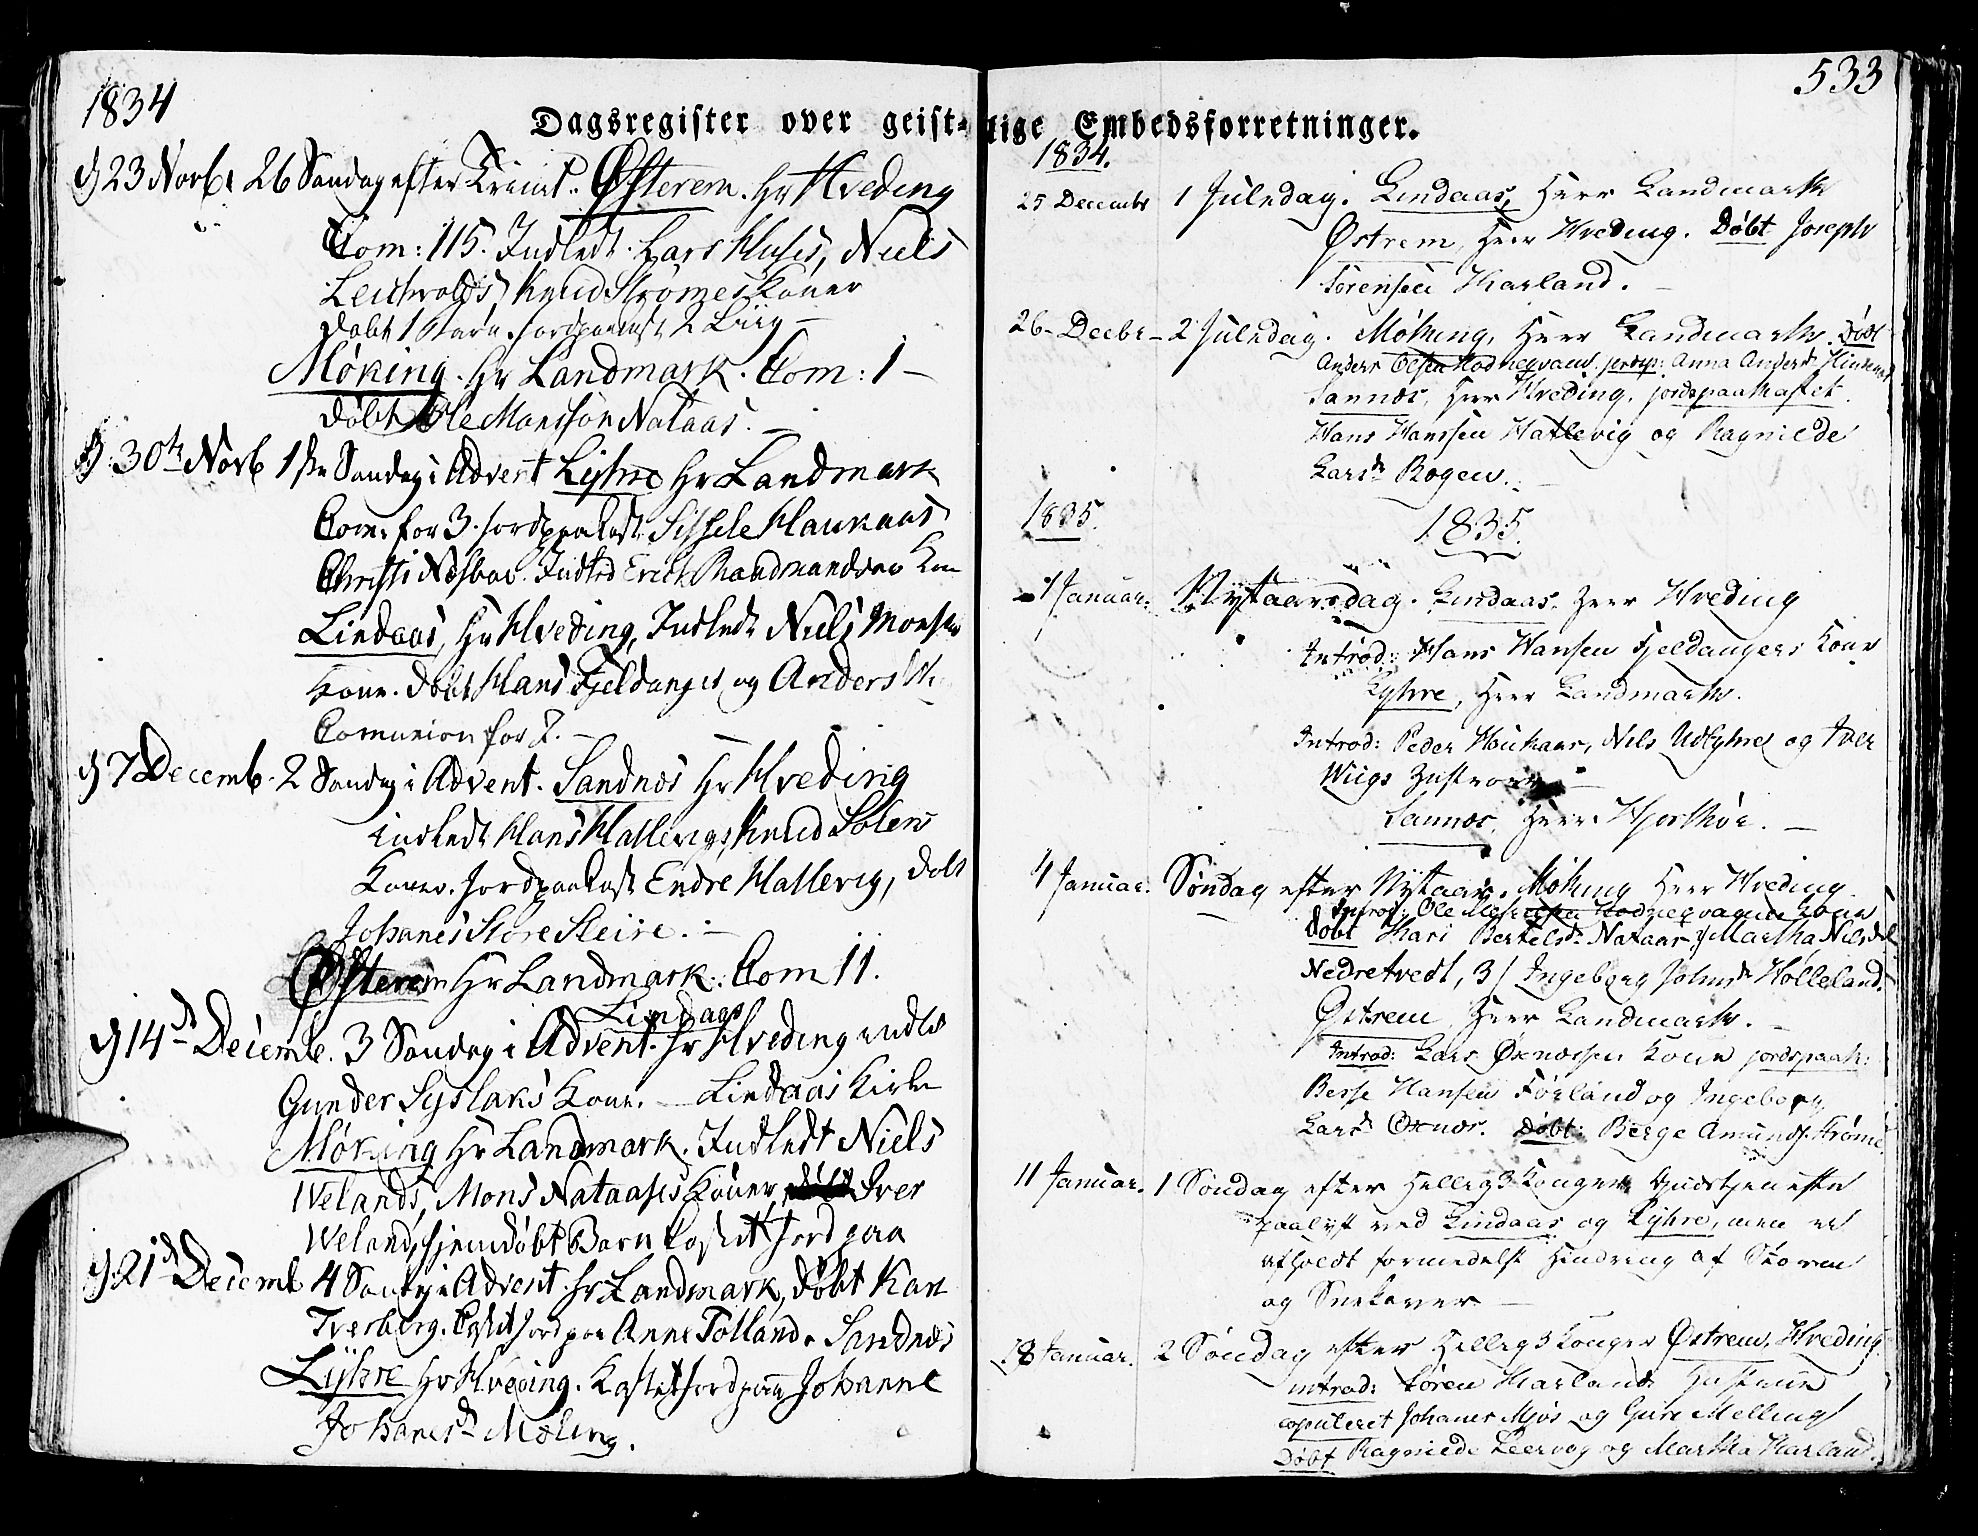 1834
Dagsregister over geist-
d 23 Novb. 26 Søndag efter Trinit. Østerem. Hr Hveding
Com: 115. Indledt. Lars Huses, Niels
Knud Strømes Koner
Døbt 1 Barn. Jordpaakast 2 Liig –
Møking. Hr Landmark. Com: 1 –
Døbt Ole Monssøn Nataas. –
d 30te Novb 1ste Søndag i Advent Lyhre Hr Landmark
Com. for 3. Jordpaakast. Sissele Haukaas
Christi Næsbøe. Indled Erick
Lindaas, Hr Hveding, Indledt Niels Monsens
Kone. Døbt Hans Fjeldanger og Anders
Comunion for 7. –
d 7 Decemb. 2 Søndag i Advent. Sandnæs Hr Hveding
Indledt Hans Hallevigs, Knud Solens
Koner. Jordpaakast Endre Hallevig, Døbt
Johanes Store Steine. –
Østerem Hr Landmark. Com 11.
Lindaas
d 14de Decemb. 3 Søndag i Advent. Hr Hveding indled
Gunder Syslaks Kone. – Lindaas Kirke
Møking Hr Landmark. Indledt Niels
Welands, Mons Nataases Koner, Iver
Weland, hjemdøbt Barn Kastet Jord paa
d 21de Decemb 4 Søndag i Advent. Hr Landmark, Døbt Kari
Tverberg. Kastet Jord paa Anne Tolland. Sandnæs
Lyhre Hr Hveding. Kastet Jord paa Johanne
Johanesd. Mæling.
533
lige Embedsforretninger.
1834.
25 Decembr 1 Juledag. Lindaas, Herr Landmark
Østrem, Herr Hveding. Døbt Joseph
Sørensen Harland. –
26– Decbr – 2 Juledag. Møking, Herr Landmark. Døbt
Anders Olsen jordsp: Anna Andersd.
Sannæs, Herr Hveding. jordspaakastet
Hans Hanssen Hatlevig og Ragnilde
Larsd. Bogen. –
1835.
1835.
1 Januar. Nytaarsdag. Lindaas. Herr Hveding
Introd: Hans Hansen Fjeldangers Kone
Lyhre, Herr Landmark.
Introd: Peder Houkaas, Nils Udlyhre og Iver
Wiigs Hustroer –
Sannæs. Herr Hjorthøe. –
4 Januar. Søndag efter Nytaar. Møking Herr Hveding.
Introd: Ole Kone
døbt Kari Bertelsd. Nataas, Martha Nilsd.
Nedretvedt, 3/ Ingeborg Johnsd. Holleland.
Østrem Herr Landmark. –
Introd: Lars Oxnæssen Kone jordspaak:
Berse Hansen Førland og Ingeborg
Larsd Oxnæs. Døbt: Berge Amunds. Strøme.
11 Januar. 1 Søndag efter Hellig 3 Konger. Gudstjenesten
paalyst ved Lindaas og Lyhre, men ei
afholdt formedelst Hindring af Storm
og Sneekaver. –
18 Januar. 2 Søndag efter Hellig 3 Konger Østrem, Hveding.
introd: Søren Harlands Hustrue
copuleret Johanes Mjøs og Guri Melling
Døbt Ragnilde Leervog og Martha Harland.